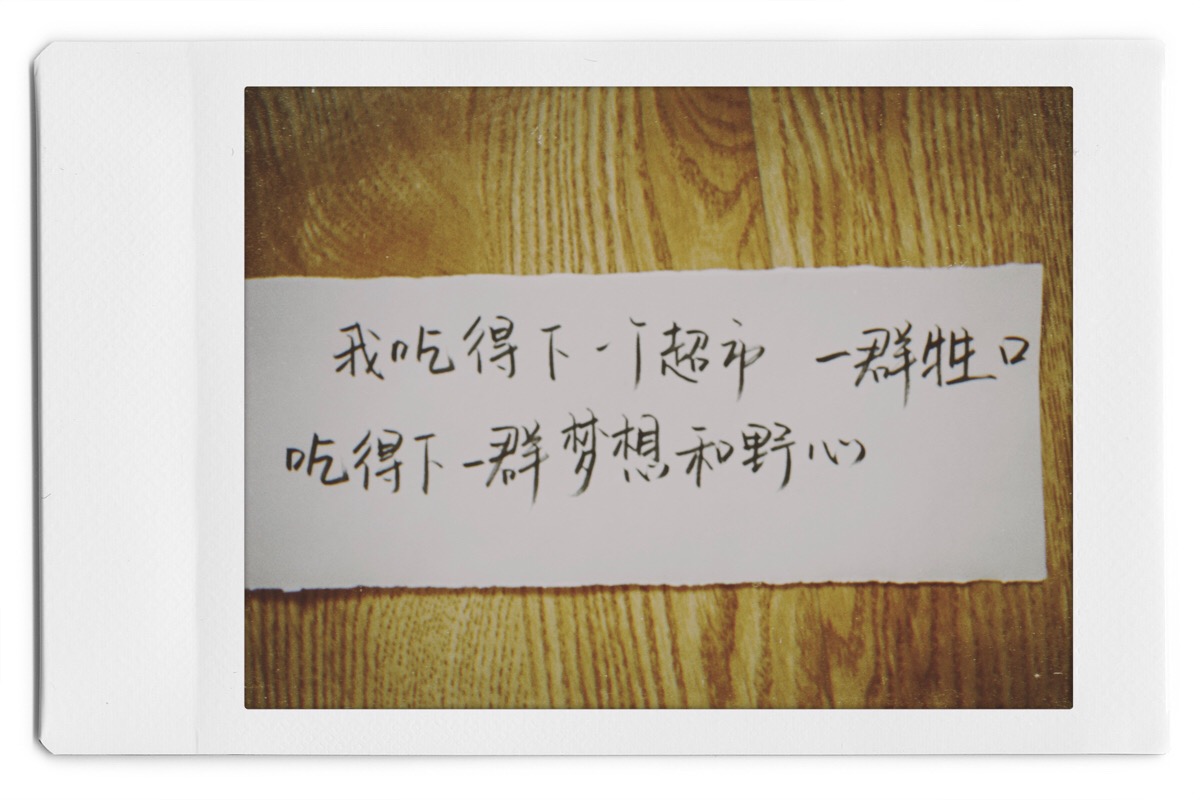 我吃得下一个超市 一群牲口
吃得下一群梦想和野心